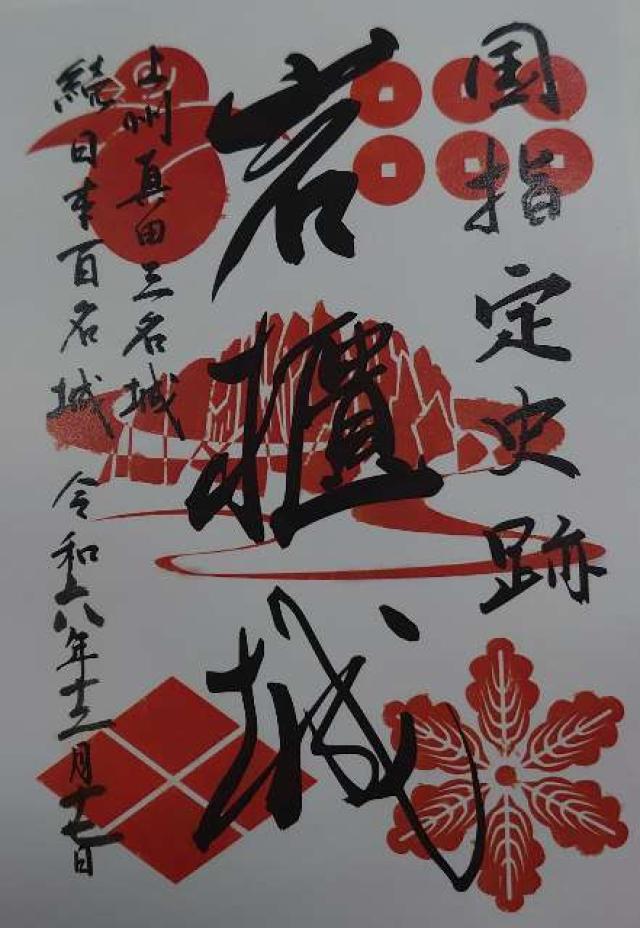 国指定史跡
岩櫃城
上州真田三名城
続日本百名城
令和六年十二月十七日